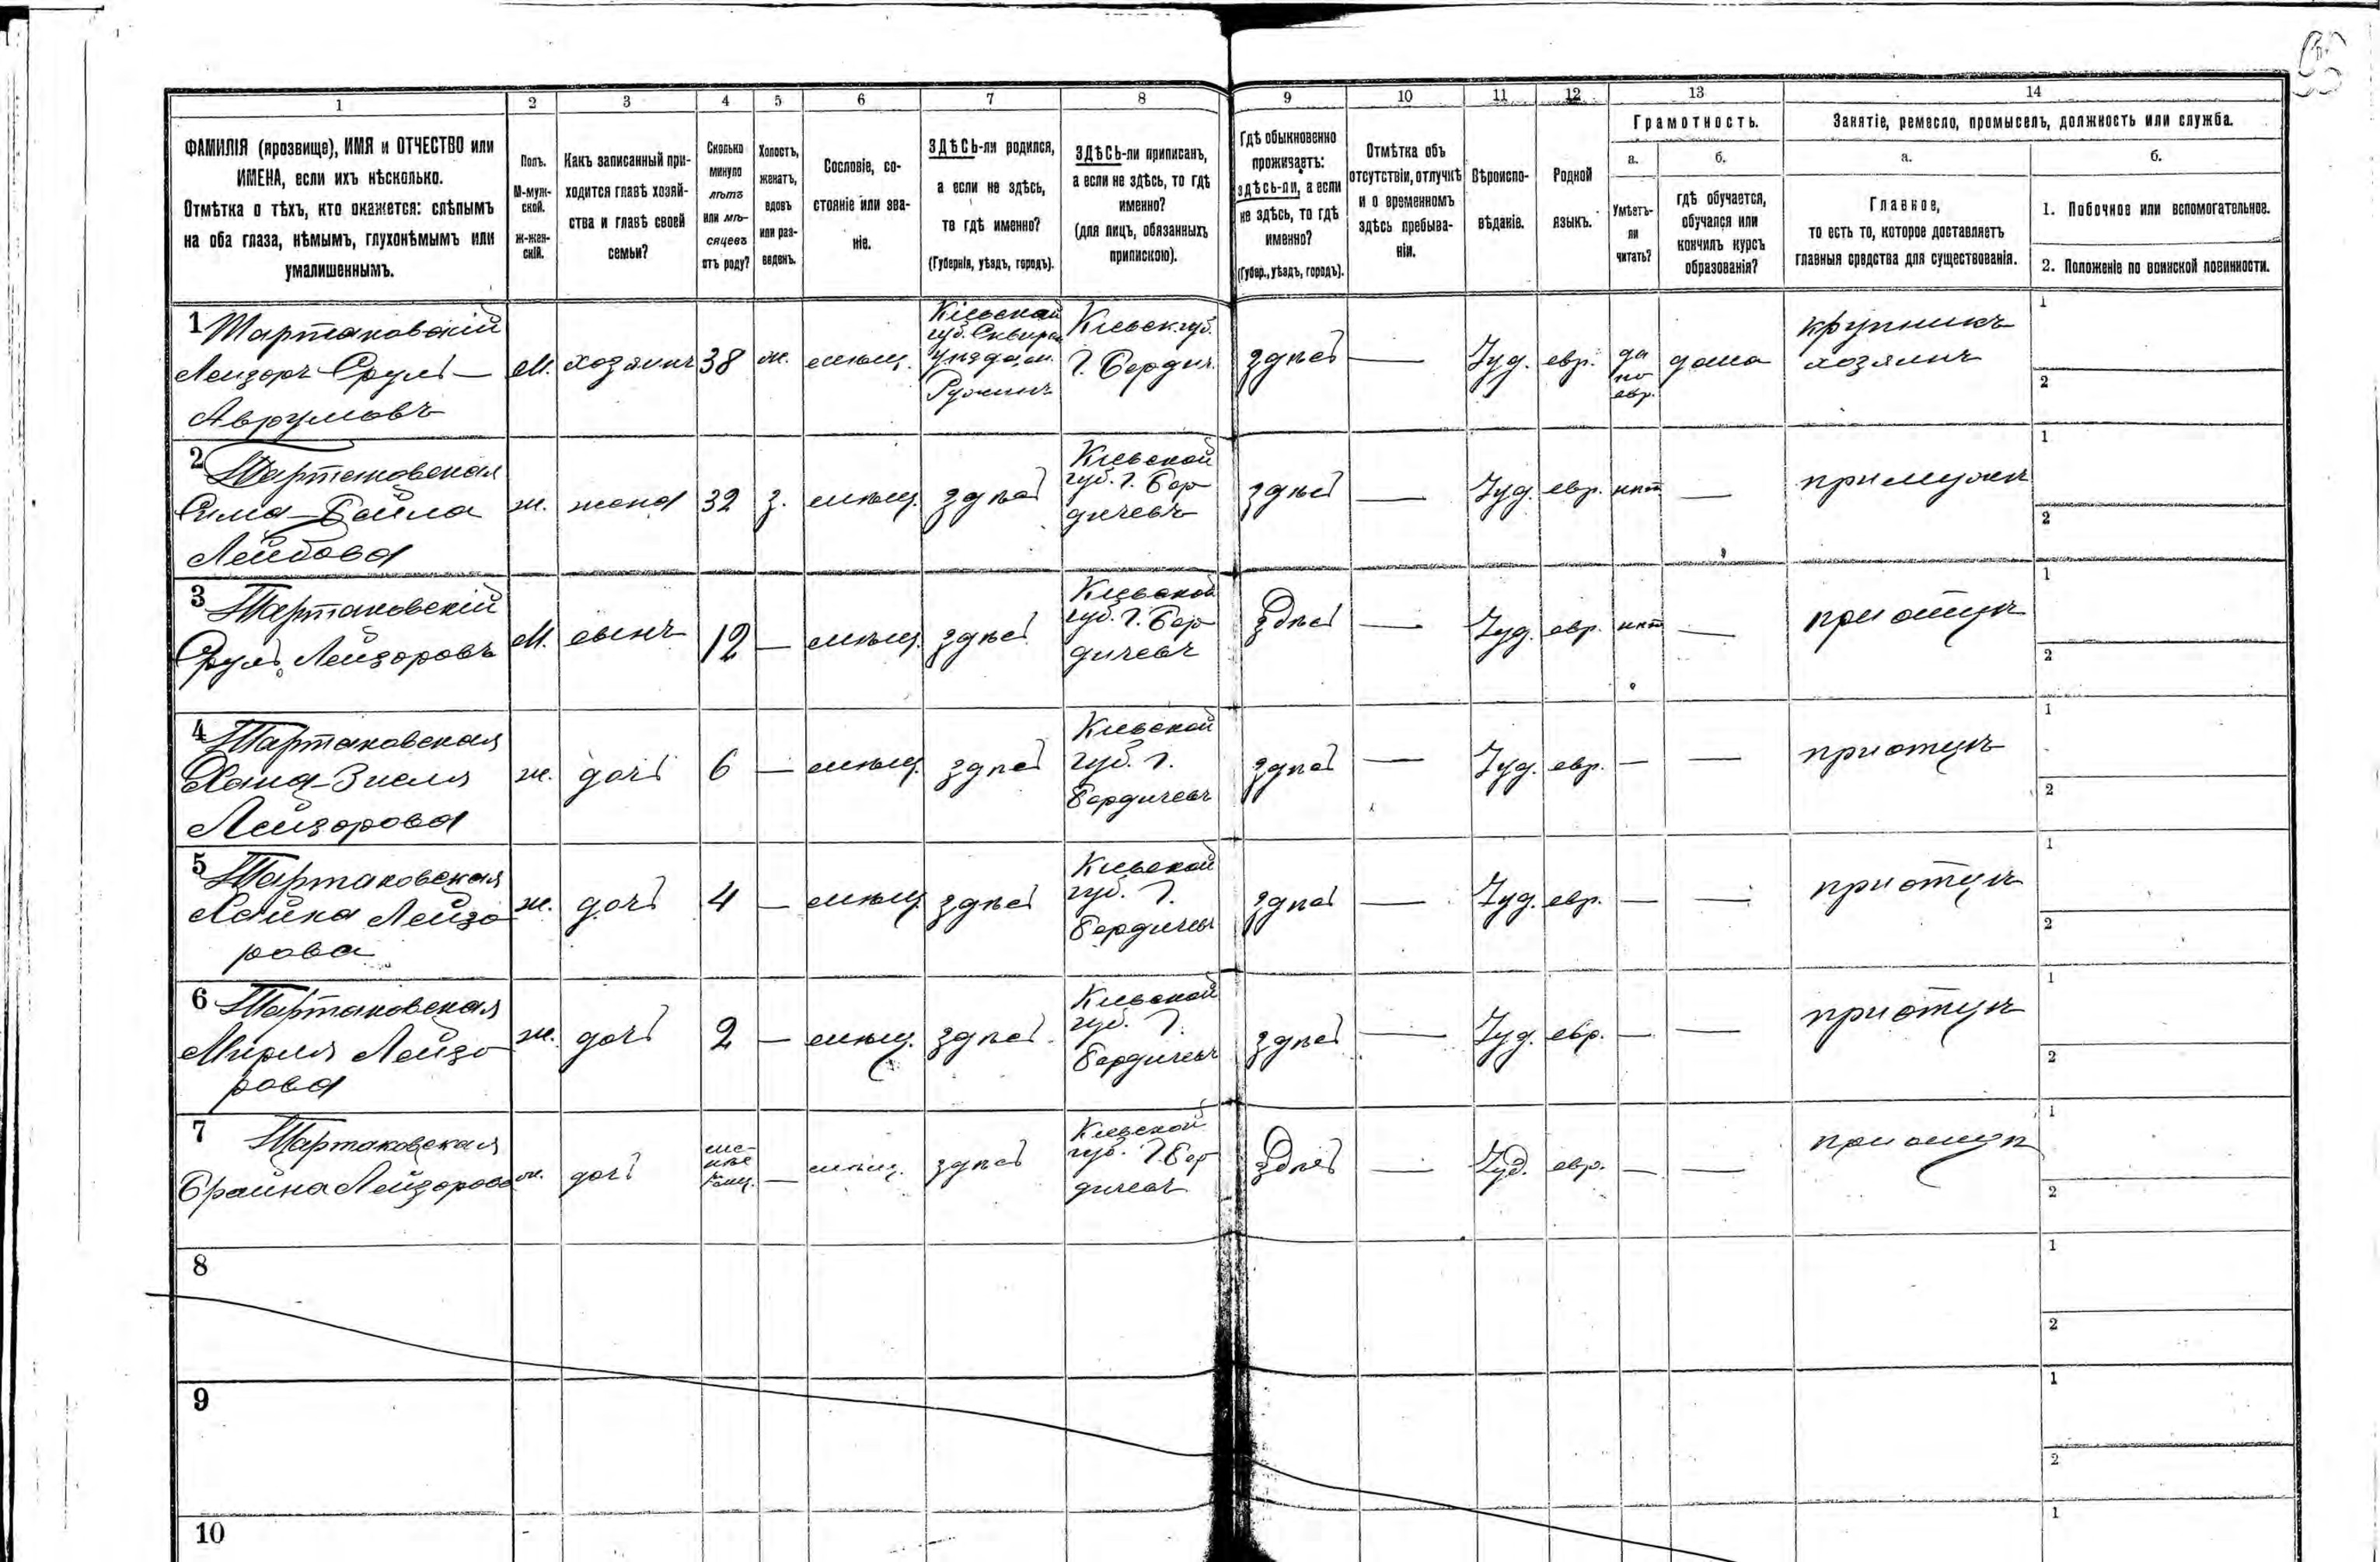 1 2 3 4 5 6 7 8 9 10 11 12 13 14
ФАМИЛІЯ (прозвище), ИМЯ и ОТЧЕСТВО или
ИМЕНА, если ихъ нѣсколько.
Отмѣтка о тѣхъ, кто окажется: слѣпымъ
на оба глаза, нѣмымъ, глухонѣмымъ или
умалишеннымъ.
Полъ.
М-муж-
ской.
Ж-жен-
скій.
Какъ записанный при-
ходится главѣ хозяй-
ства и главѣ своей
семьи?
Сколько
минуло
лѣтъ
или мѣ-
сяцевъ
отъ роду?
Холостъ,
женатъ,
вдовъ
или раз-
веденъ.
Сословіе, со-
стояніе или зва-
ніе.
ЗДѢСЬ-ли родился,
а если не здѣсь,
то гдѣ именно?
(Губернія, уѣздъ, городъ).
ЗДѢСЬ-ли приписанъ,
а если не здѣсь, то гдѣ
именно?
(для лицъ, обязанныхъ
припискою).
Гдѣ обыкновенно
проживаетъ:
здѣсь-ли, а если
не здѣсь, то гдѣ
именно?
(Губер., уѣздъ, городъ).
Отмѣтка объ
отсутствіи, отлучкѣ
и о временномъ
здѣсь пребыва-
ніи.
Вѣроиспо-
вѣданіе.
Родной
языкъ.
Грамотность.
а.
Умѣетъ-
ли
читать?
б.
гдѣ обучается,
обучался или
кончилъ курсъ
образованія?
Занятіе, ремесло, промыселъ, должность или служба.
а.
Главное,
то есть то, которое доставляетъ
главныя средства для существованія.
б.
1. Побочное или вспомогательное.
2. Положеніе по воинской повинности.
1 Тартаковскій
Лейзоръ Сруль —
Аврумовъ
М.
хозяинъ
38
ж.
мѣщ.
Кіевской
губ. Сквирск
уѣзда, м.
Ружинъ
Кіевск. губ.
г. Бердич.
здѣсь
—
Іуд.
евр.
да
по
евр.
дома
крупникъ
хозяинъ
1
2
2 Тартаковская
Сима-Бейла
Лейбова
ж.
жена
32
з.
мѣщ.
здѣсь
Кіевской
губ. г. Бер
дичевъ
здѣсь
—
Іуд.
евр.
нѣт
—
при мужѣ
1
2
3 Тартаковскій
Сруль Лейзоровъ
М.
сынъ
12
—
мѣщ.
здѣсь
Кіевской
губ. г. Бер
дичевъ
здѣсь
—
Іуд.
евр.
нѣт
—
при отцѣ
1
2
4 Тартаковская
Хана-Зисля
Лейзорова
ж.
дочь
6
—
мѣщ.
здѣсь
Кіевской
губ. г.
Бердичевъ
здѣсь
—
Іуд.
евр.
—
—
при отцѣ
1
2
5 Тартаковская
Хайка Лейзо
рова
ж.
дочь
4
—
мѣщ.
здѣсь
Кіевской
губ. г.
Бердичевъ
здѣсь
—
Іуд.
евр.
—
—
при отцѣ
1
2
6 Тартаковская
Мирля Лейзо
рова
ж.
дочь
2
—
мѣщ.
здѣсь
Кіевской
губ. г.
Бердичевъ
здѣсь
—
Іуд.
евр.
—
—
при отцѣ
1
2
7 Тартаковская
Брайна Лейзорова
ж.
дочь
—
мѣщ.
здѣсь
Кіевской
губ. г. Бер
дичевъ
здѣсь
—
Іуд.
евр.
—
—
при отцѣ
1
2
8
1
2
9
1
2
10
1